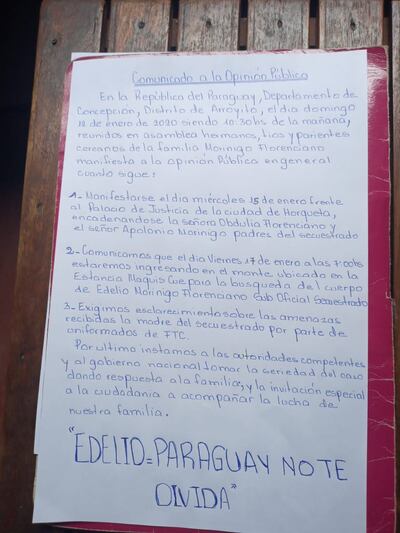 Comunicado a la Opinión Pública
En la República del Paraguay, Departamento de
Concepción, Distrito de Arroyito, el día domingo
12 de enero de 2020 siendo 10:30hs de la mañana,
reunidos en asamblea hermanos, tios y parientes
cercanos de la familia Morinigo Florenciano
manifiesta a la opinión Pública en general
cuanto sigue:
1- Manifestarse el día miércoles 15 de enero frente
al Palacio de Justicia de la ciudad de Horqueta,
encadenandose la señora Obdulia Florenciano y
el señor Apolonio Morinigo padres del secuestrado
2- Comunicamos que el día Viernes 17 de enero a las 7:00hs
estaremos ingresando en el monte ubicado en la
Estancia Maquis Cue para la busqueda del cuerpo
de Edelio Morinigo Florenciano Sub Oficial Secuestrado
3- Exigimos esclarecimiento sobre las amenazas
recibidas la madre del secuestrado por parte de
uniformados de FTC.
Por ultimo instamos a las autoridades competentes
y al gobierno nacional tomar la seriedad del caso
dando respuesta a la familia, y la invitación especial
a la ciudadania a acompañar la lucha de
nuestra familia.
"EDELIO=PARAGUAY NO TE
OLVIDA"